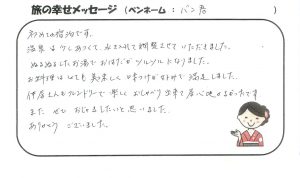 旅の幸せメッセージ（ペンネーム：パン君）
初めての宿泊です。
温泉は少しあつくて、水を入れて調整させていただきました。
ぬるぬるしたお湯でおはだがツルツルになりました。
お料理はとても美味しく味つけがよくて満足しました。
仲居さんもフレンドリーで楽しくおしゃべり出来て居心地がよかったです
また ぜひ おじゃましたいと思いました。
ありがとうございました。